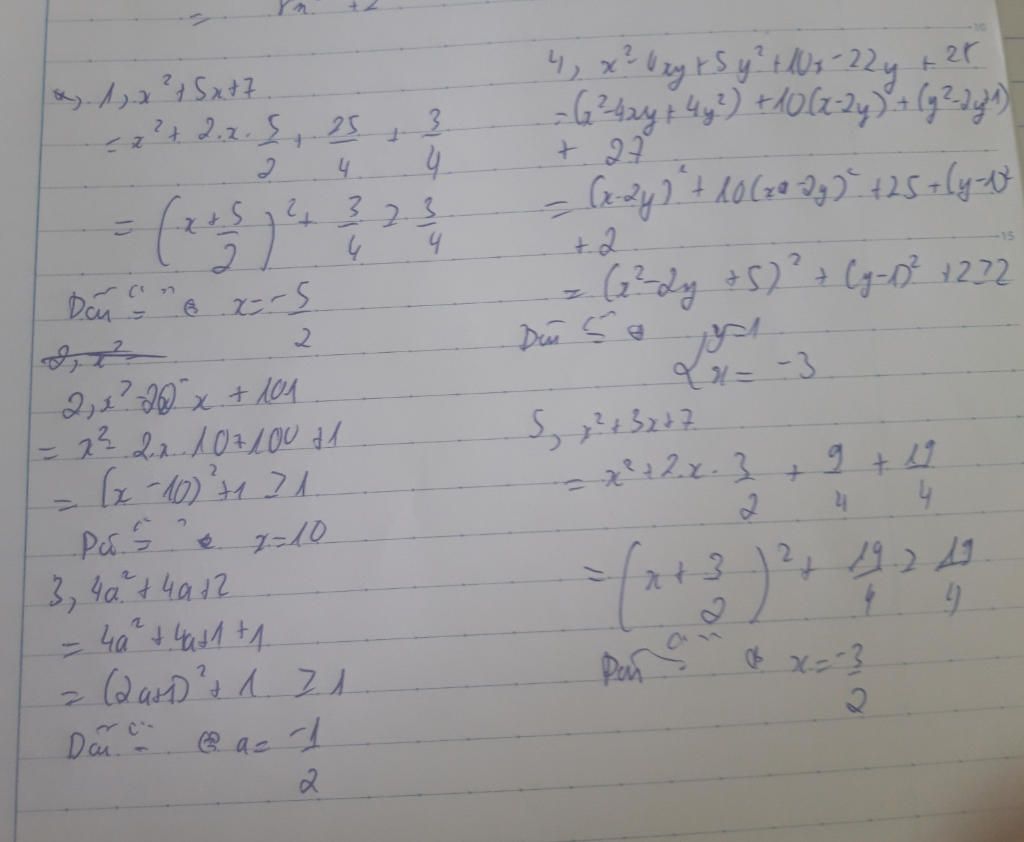 1, x² + 5x + 7
= x² + 2.x. 5/2 + 25/4 + 3/4
= (x + 5/2)² + 3/4 ≥ 3/4
Dấu "=" x = -5/2
2, x²
2, x² - 20x + 101
= x² - 2.x.10 + 100 + 1
= (x - 10)² + 1 ≥ 1
Dấu "=" x = 10
3, 4a² + 4a + 2
= 4a² + 4a + 1 + 1
= (2a + 1)² + 1 ≥ 1
Dấu "=" a = -1/2
4, x² - 4xy + 5y² + 10x - 22y + 28
= (x² - 4xy + 4y²) + 10(x - 2y) + (y² - 2y + 1)
+ 27
= (x - 2y)² + 10(x - 2y)² + 25 + (y - 1)²
+ 2
= (x² - 2y + 5)² + (y - 1)² + 2 ≥ 2
Dấu "=" y = 1
x = -3
5, x² + 3x + 7
= x² + 2.x. 3/2 + 9/4 + 19/4
= (x + 3/2)² + 19/4 ≥ 19/4
Dấu "=" x = -3/2